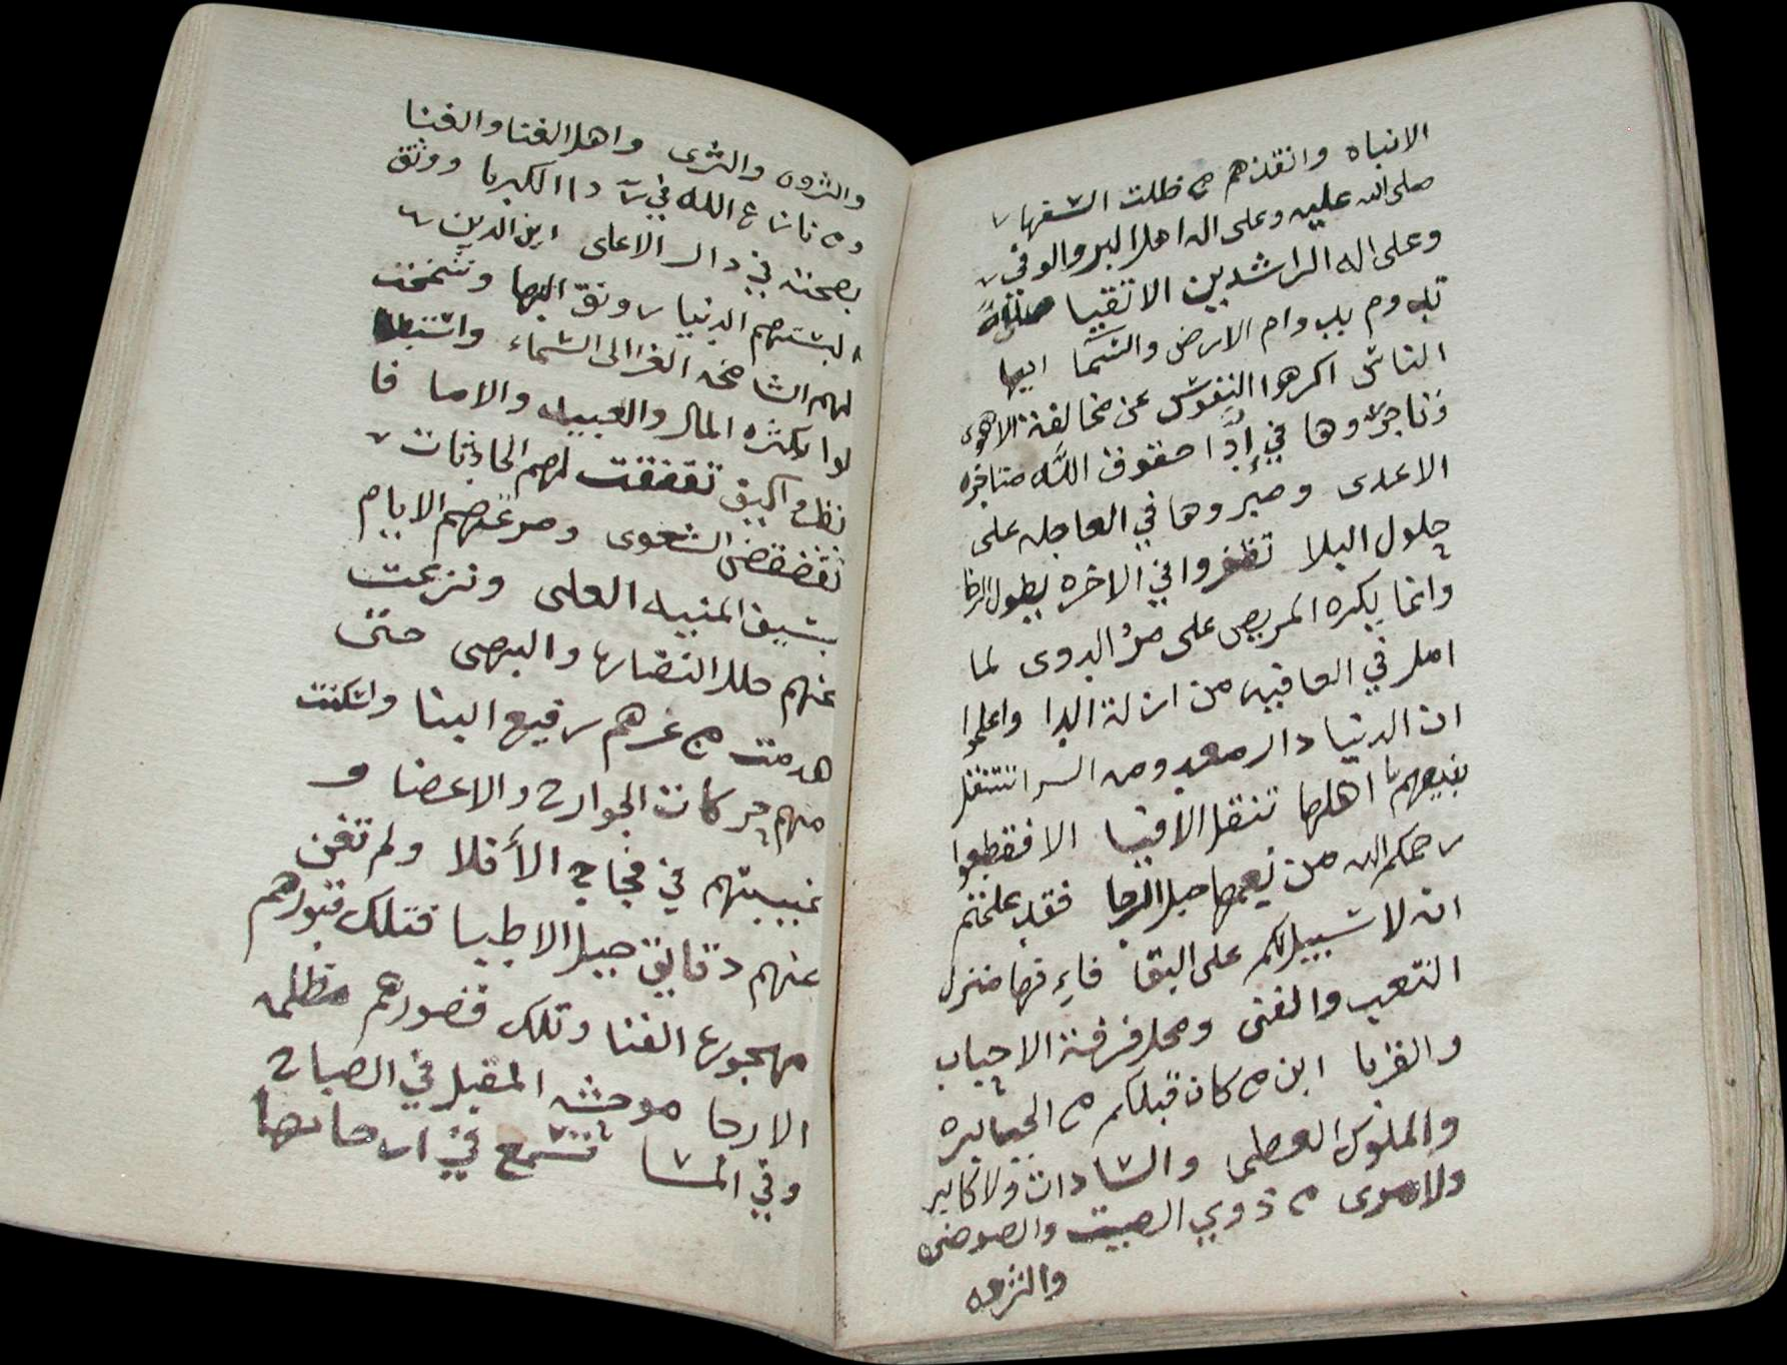 الانباه وانقذهم من ظلت السفها
صلى الله عليه وعلى اله اهل البر والوفى
وعلى اله الراشدين الاتقيا صلاة
تدوم بدوام الارض والسما ايها
الناس اكرهوا النفوس عن مخالفة الاهوى
وناجزوها في إدَّا حقوق الله مناجزه
الاعدى وصبروها في العاجله على
حلول البلا تظفروا في الاخره بطول الرخا
وانما يكره المريض على مرُ الدوى لما
امل في العافيه من ازلة الدا واعلموا
ان الدنيا دار معبر ومن السر اتنتقل
بنعيمها اهلها تنقل الافيا الا فقطعوا
رحمكم الله من نعيمها حبل الرجا فقد علمتم
ان لا سبيل لكم على البقا فاءنها منزل
التعب والفنى ومحل فرقة الاحباب
والقربا اين من كان قبلكم من الجبابره
والملوك العظما والسادات ولاكابر
ولامرى من ذوي الصيت والصوضى
والثروه
والثروه والثرى واهل الغنا والغنا
من نازع الله في ردا الكبريا ووثق
بصحته في دار الاعلى اين الذين
البستهم الدنيا رونق البها وشمخت
لهم الشامخه الغرا الى السماء واستبطا
لوا بكثره المال والعبيد والاما فا
نظروا كيف تقعقعت لهم الحادثات
تقضقض الشعوى وصرعتهم الايام
بسيف المنيه العلى ونزعت
عنهم حلل النضاره والبهى حتى
هدمت من عزهم رفيع البنا واسكنت
منهم حركات الجوارح والاعضا و
غيبتهم في فجاج الأفلا ولم تغن
عنهم دقايق حيل الاطبا فتلك قبورهم
مهجورها الفنا وتلك قصورهم مظلمه
الارجا موحشه المقيل في الصباح
وفي المسا تسمع في ارجاءها